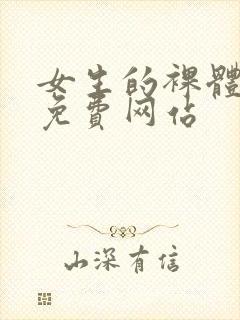 女生的裸體
免費网佔
山深有信